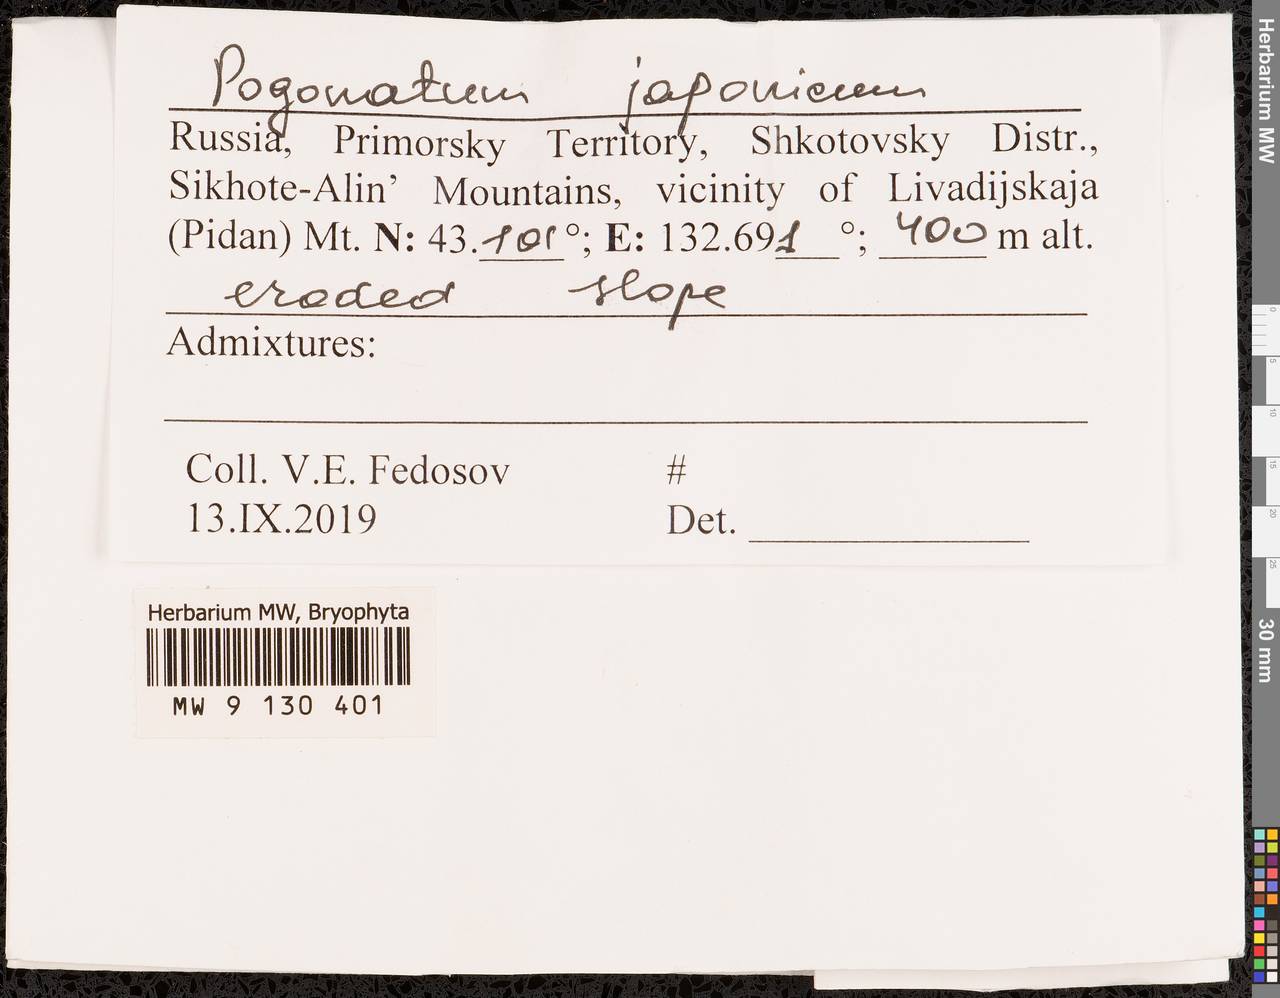 Pogonatum japonicum
Russia, Primorsky Territory, Shkotovsky Distr.,
Sikhote-Alin’ Mountains, vicinity of Livadijskaja
(Pidan) Mt. N: 43.101°; E: 132.691 °; 400 m alt.
eroded slope
Admixtures:
Coll. V.E. Fedosov #
13.IX.2019 Det.
Herbarium MW, Bryophyta
MW 9 130 401
Herbarium MW
0
5
10
15
20
25
30 mm